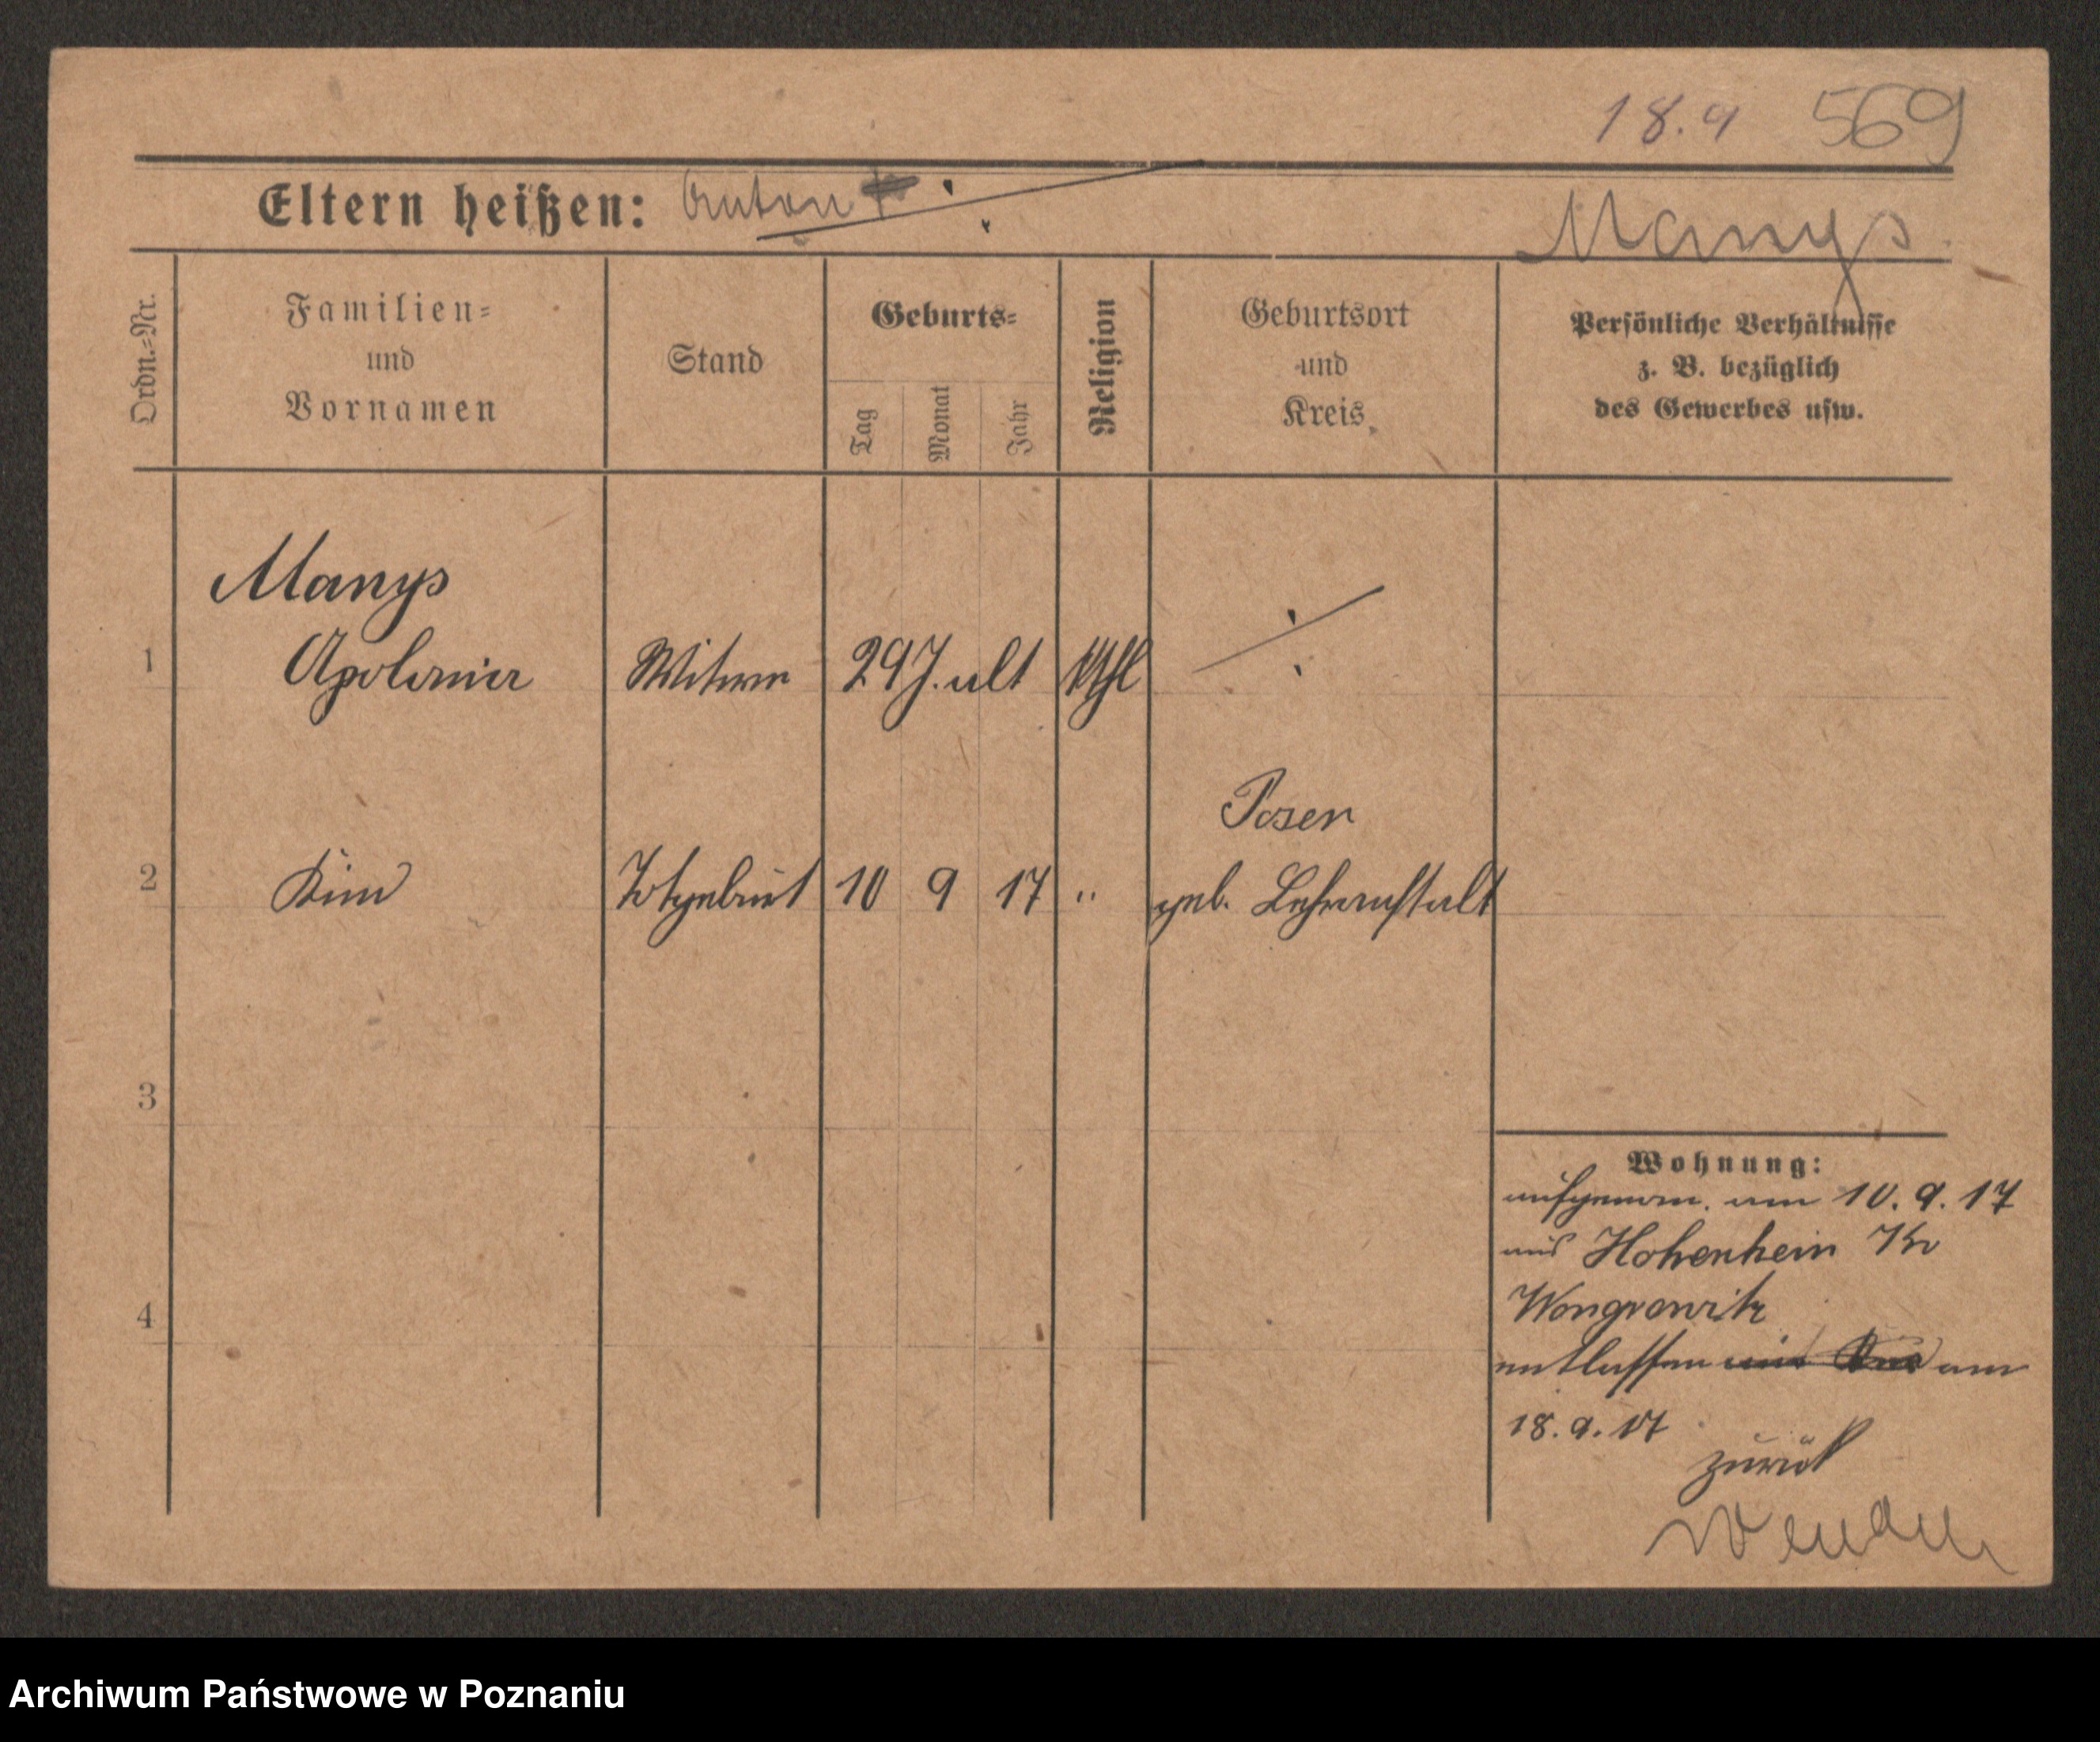 18.9 569
Eltern heißen: Anton
Manys
Ordn.=Nr.
Familien=
und
Vornamen
Stand
Geburts=
Tag
Monat
Jahr
Religion
Geburtsort
und
Kreis
Persönliche Verhältnisse
z. B. bezüglich
des Gewerbes usw.
Manys
1 Apolonia Witwe 29 J. alt Kthl ./.
Posen
2 Kind Totgeburt 10 9 17 " geb. Lehranstalt
3
4
Wohnung:
aufgenom. am 10.9.17
aus Hohenhein Kr
Wongrowitz
entlassen mit Kind am
18.9.17
zurück
Wenden
Archiwum Państwowe w Poznaniu